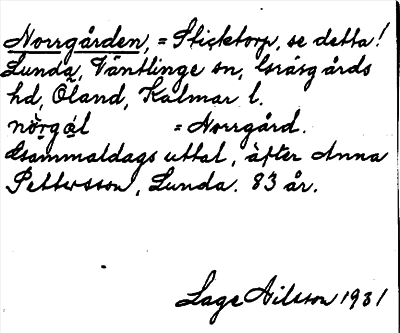 Norrgården, = Sticktorp, se detta!
Lunda, Ventlinge sn, Gräsgårds
hd, Öland, Kalmar l.
nòrgál = Norrgård.
Gammaldags uttal, efter Anna
Pettersson, Lunda. 83 år.
Lage Nilsson 1931